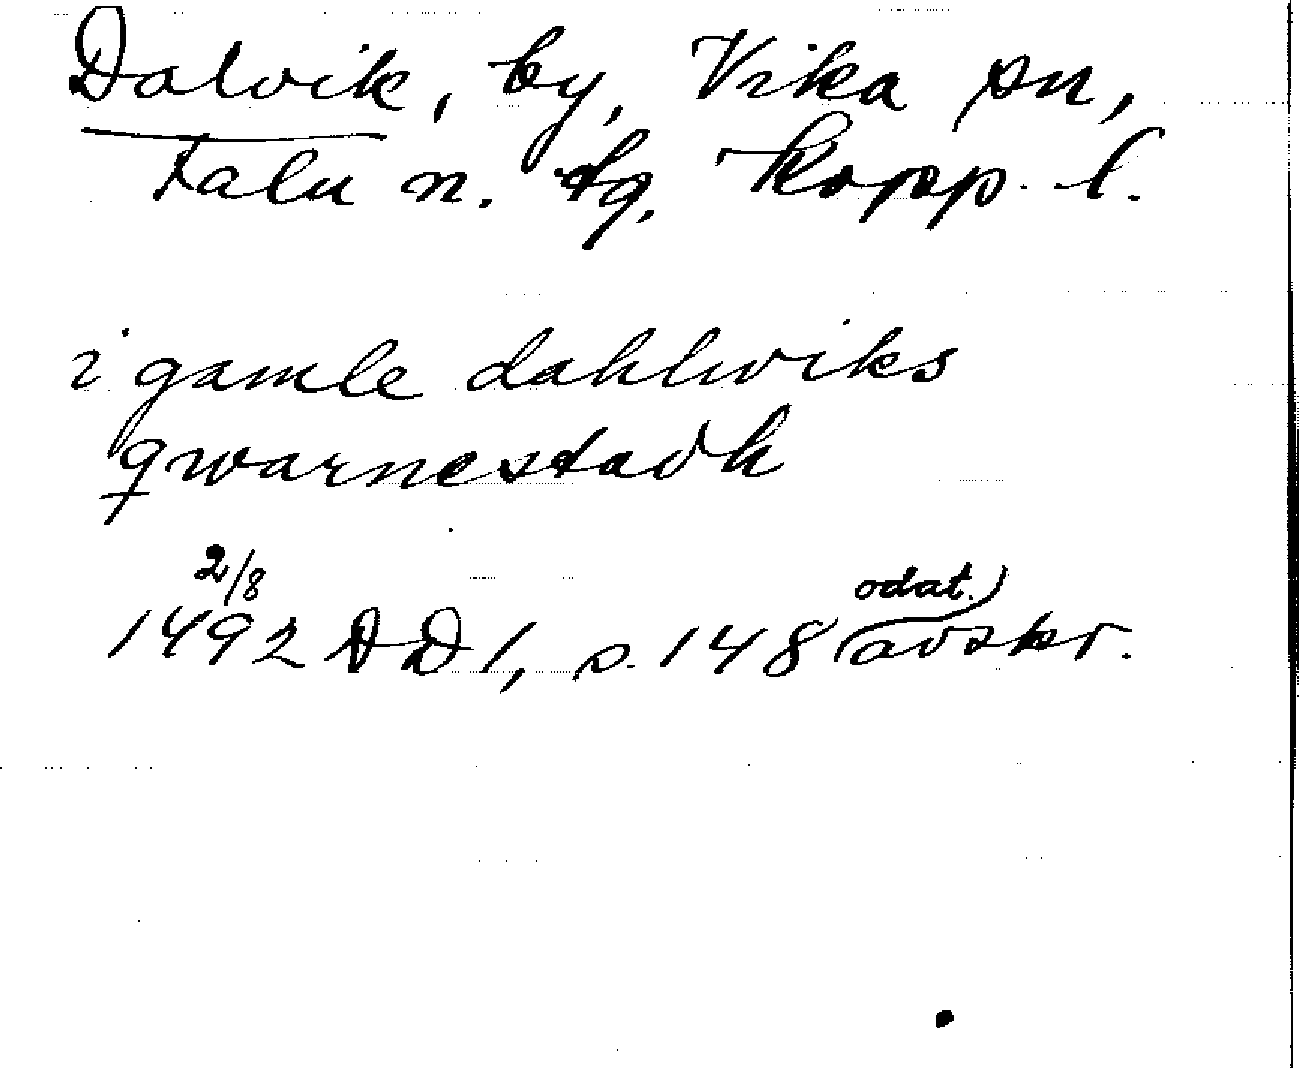 Dalvik, by, Vika sn,
Falu n. tg. Kopp. l.
i gamle dahlwiks
qwarnestadh
2/8
1492 DD 1, s. 148 (odat. avskr.